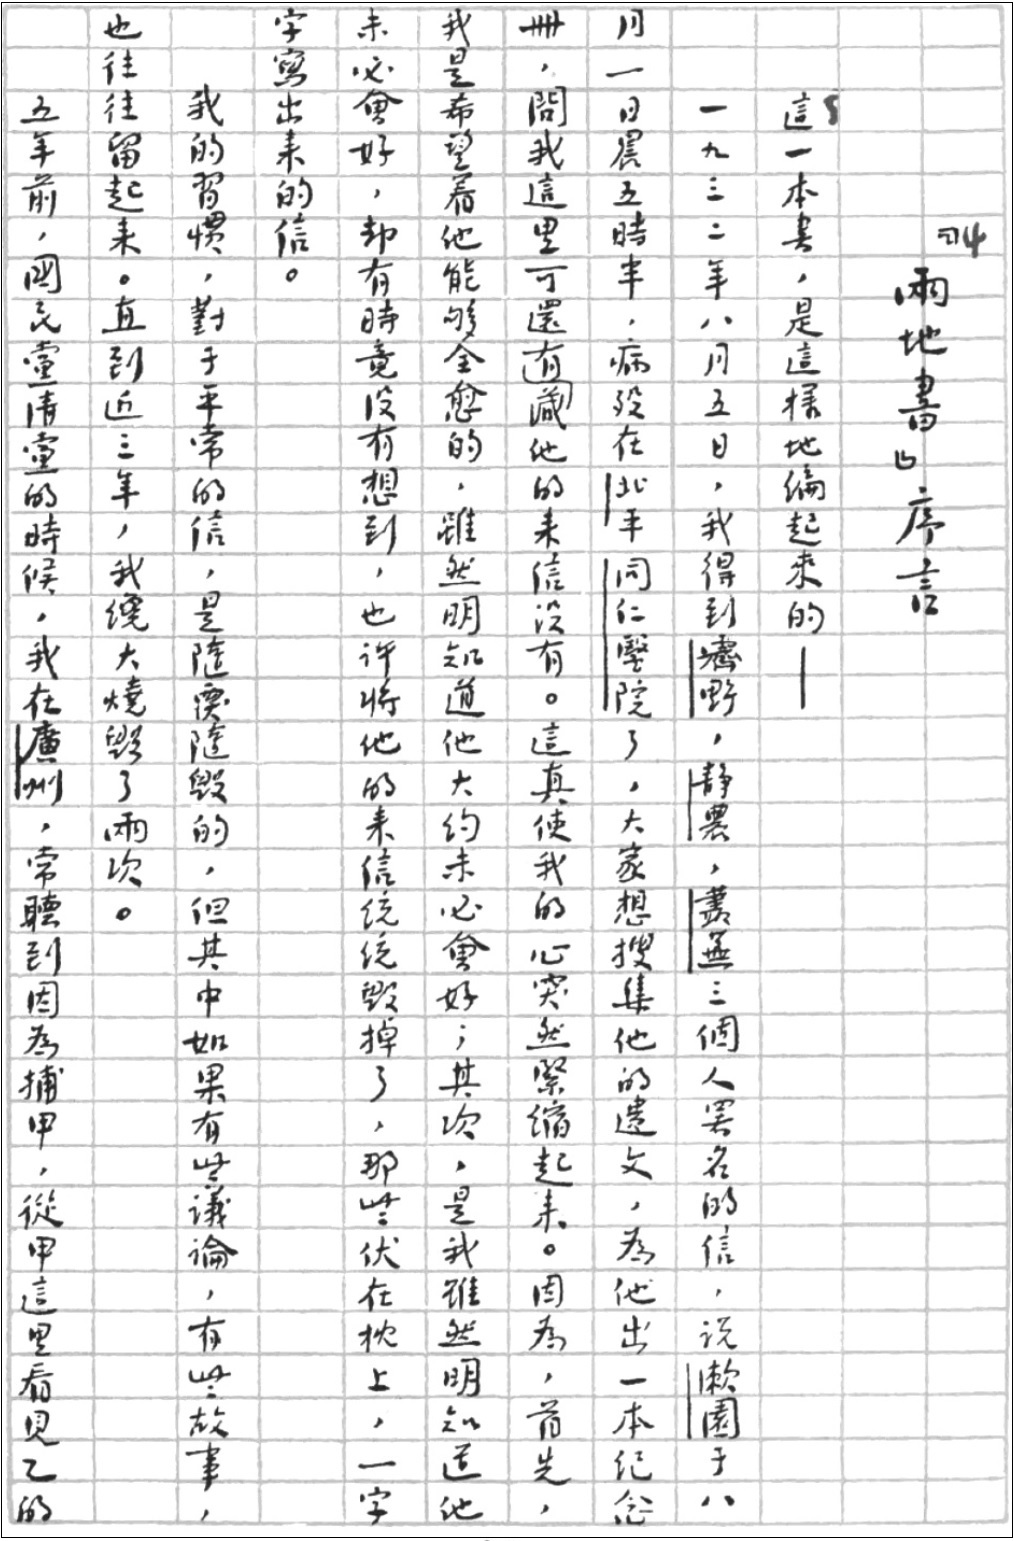 「兩地書」序言
這一本書，是這樣地編起來的——
一九三二年八月五日，我得到霽野，靜農，叢蕪三個人署名的信，説漱園于八
月一日晨五時半，病歿在北平同仁醫院了，大家想搜集他的遺文，為他出一本紀念
冊，問我這里可還有藏他的來信没有。這真使我的心突然緊縮起來。因為，首先，
我是希望着他能够全愈的，雖然明知道他大約未必會好；其次，是我雖然明知道他
未必會好，却有時竟没有想到，也許將他的來信統統毀掉了，那些伏在枕上，一字
字寫出來的信。
我的習慣，對于平常的信，是隨復隨毀的，但其中如果有些議論，有些故事，
也往往留起來。直到近三年，我纔大燒毀了兩次。
五年前，國民黨清黨的時候，我在廣州，常聽到因為捕甲，從甲這里看見乙的